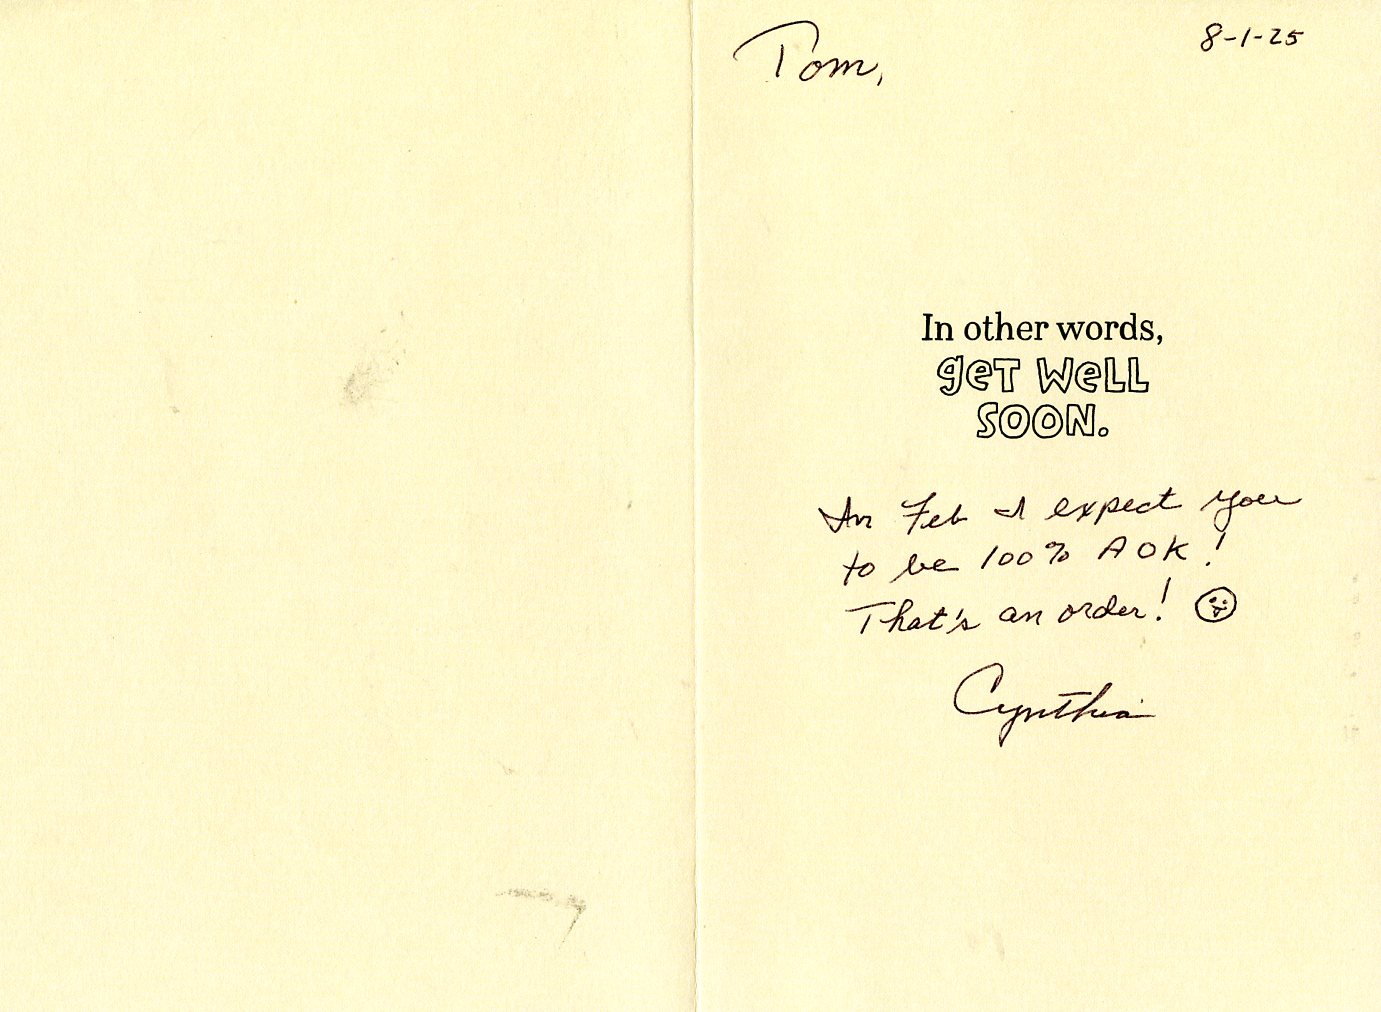 8-1-25
Tom,
In other words,
get well
soon.
In Feb I expect you
to be 100% A OK!
That's an order!
Cynthia